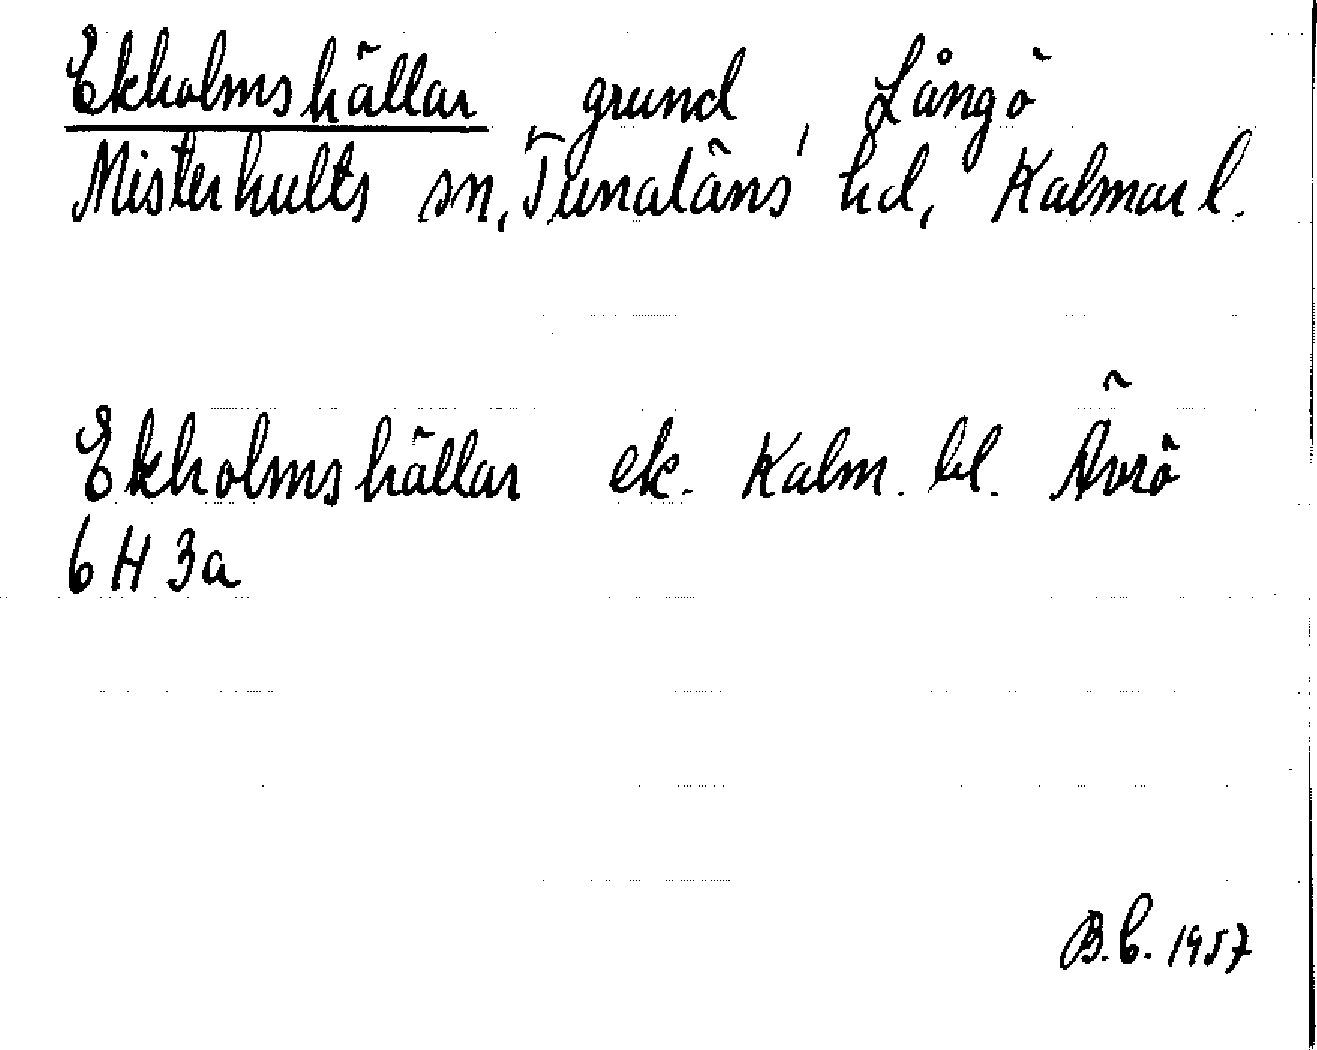 Ekholmshällar, grund, Långö
Misterhults sn, Tunaläns hd, Kalmar l.
Ekholmshällar ek. Kalm. bl. Ävrö
6 H 3a
B.b. 1957